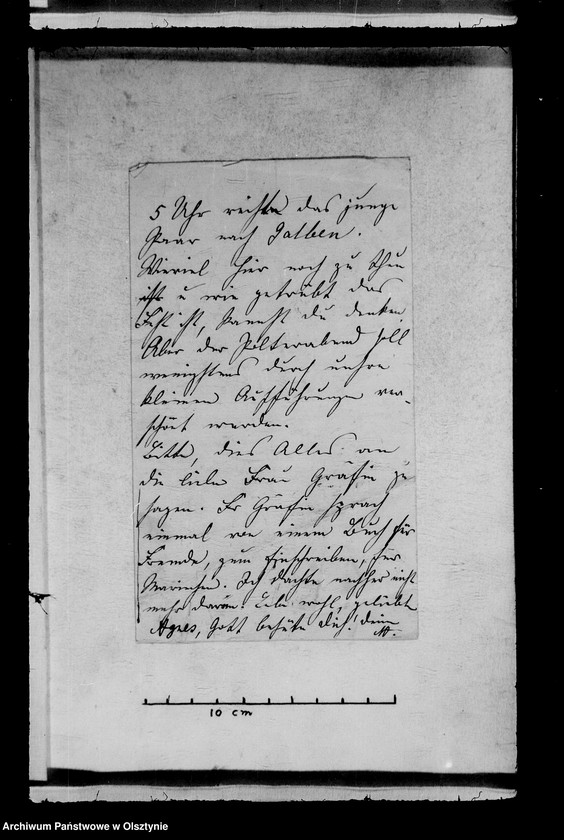 5 Uhr reiste das junge
Paar nach Galben.
Wieviel hier noch zu thun
ist u wie getrübt das
Fest ist, kannst du denken.
Aber der Polterabend soll
wenigstens durch unsre
kleinen Aufführungen ver-
schönt werden.
Bitte, dies Alles an
die liebe Frau Gräfin zu
sagen. Fr Gräfin sprach
einmal von einem Buch für
Fremde, zum Einschreiben, für
Mariechen. Ich dachte nachher nicht
mehr daran. Lebe wohl, geliebte
Agnes, Gott behüte dich! Deine
M.
10 cm
Archiwum Państwowe w Olsztynie